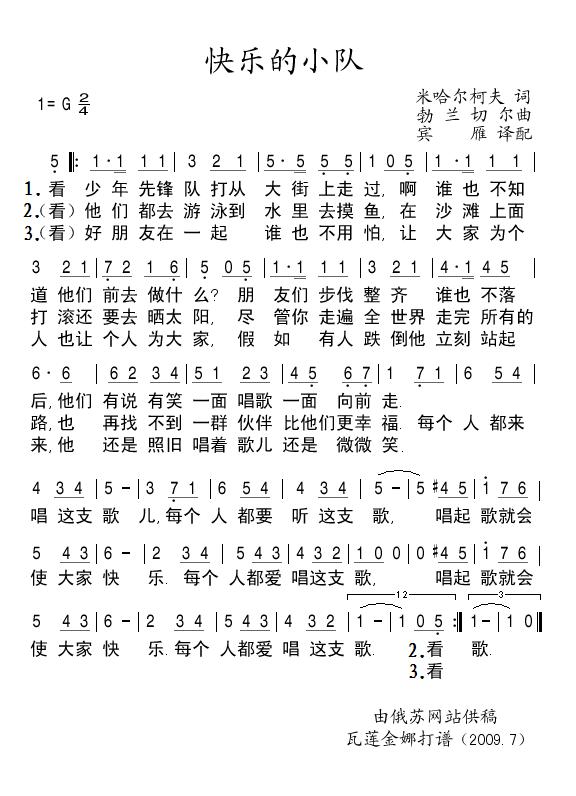 快乐的小队
1= G 2/4
米哈尔柯夫 词
勃 兰 切 尔曲
宾 雁 译配
5 ‖: 1·1 1 1 | 3 2 1 | 5· 5 5 5 | 1 0 5 | 1·1 1 1 |
1.看 少 年 先锋 队 打从 大 街 上走 过,啊 谁 也 不知
2.(看)他 们 都去 游 泳到 水 里 去摸 鱼,在 沙 滩 上面
3.(看)好 朋 友在 一 起 谁 也 不用 怕,让 大 家 为个
3 2 1 | 7 2 1 6 | 5 0 5 | 1·1 1 1 | 3 2 1 | 4·1 4 5 |
道 他们 前去 做什 么? 朋 友们 步伐 整 齐 谁也 不落
打 滚还 要去 晒太 阳, 尽 管你 走遍 全 世界 走完 所有的
人 也让 个人 为大 家, 假 如 有人 跌 倒他 立刻 站起
6·6 | 6 2 3 4 | 5 1 2 3 | 4 5 6 7 | 1 7 1 2 | 6 5 4 |
后,他们 有说 有笑 一面 唱歌 一面 向前 走.
路,也 再找 不到 一群 伙伴 比他们 更幸 福. 每个 人 都来
来,他 还是 照旧 唱着 歌儿 还是 微微 笑.
4 3 4 | 5 - | 3 7 1 | 6 5 4 | 4 3 4 | 5 - | 5 #4 5 | 1 7 6 |
唱 这支 歌 儿,每个 人 都要 听 这支 歌, 唱起 歌就会
5 4 3 | 6 - | 2 3 4 | 5 4 3 | 4 3 2 | 1 0 0 | 0 #4 5 | 1 7 6 |
使 大家 快 乐. 每个 人都爱 唱这支 歌, 唱起 歌就会
12 3
5 4 3 | 6 - | 2 3 4 | 5 4 3 | 4 3 2 | 1 - | 1 0 5 :‖ 1 - | 1 0 ‖
使 大家 快 乐.每个 人都爱 唱 这支 歌. 2.看 歌.
3.看
由俄苏网站供稿
瓦莲金娜打谱(2009.7)